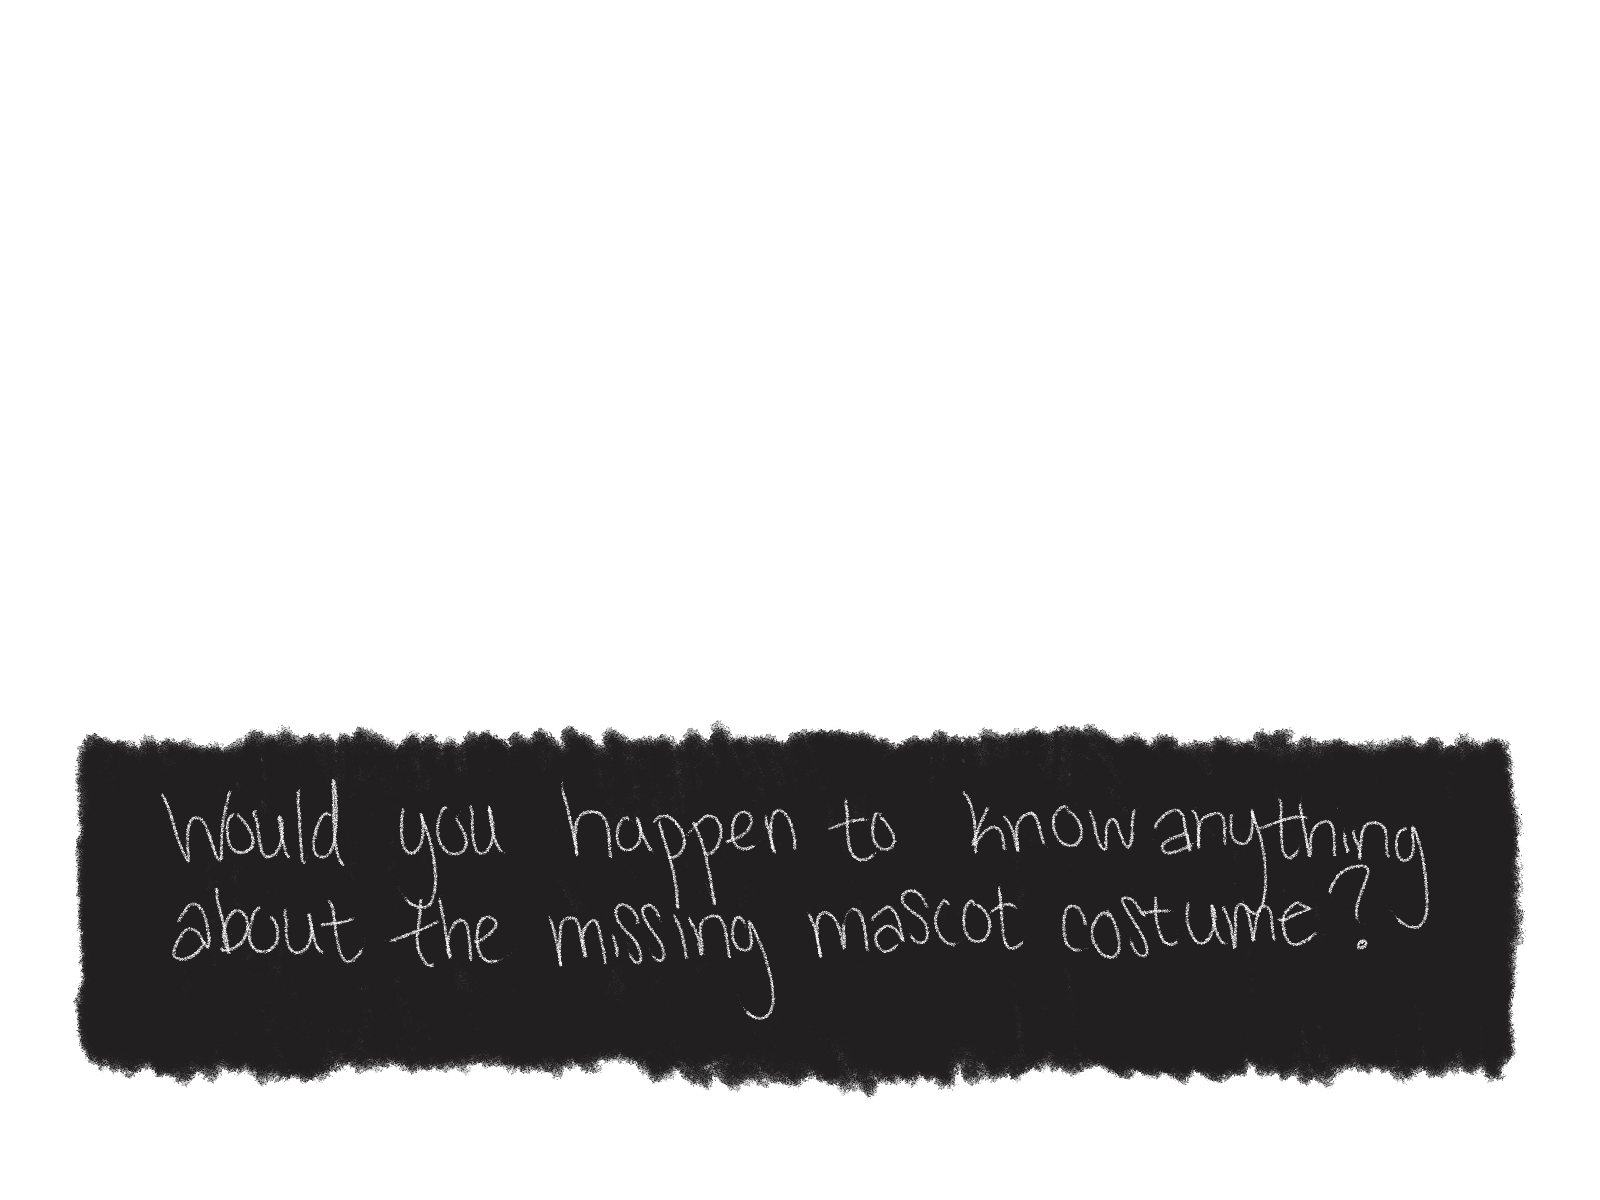 Would you happen to know anything
about the missing mascot costume?